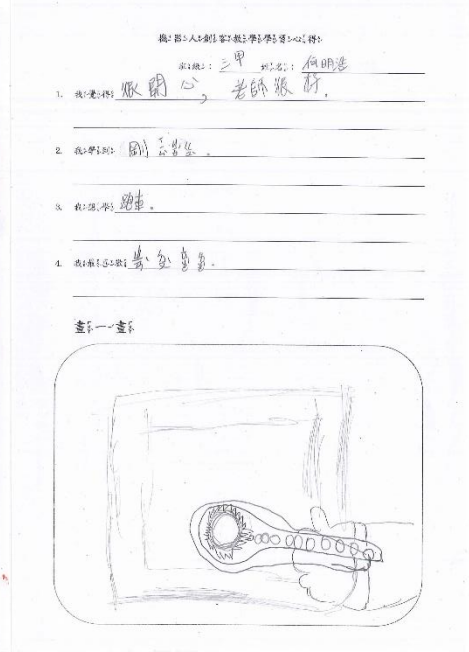 機器人創客教學學習心得
班級：三甲 姓名：何明浩
1. 我覺得很開心，老師很好。
2. 我學到剛
3. 我想學跑車。
4. 我最喜歡
畫一畫